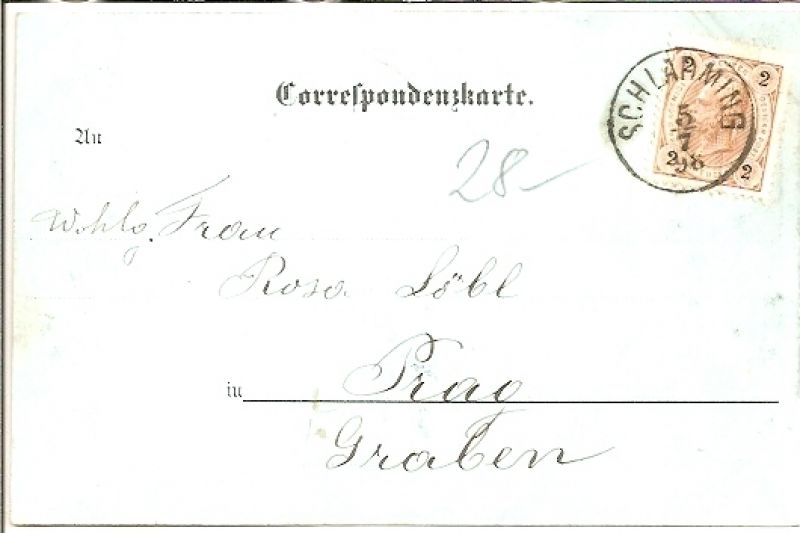 Correspondenzkarte.
SCHLADMING
5
7
98
2 2
2 2
An
28-
Wohlg. Frau
Rosa Löbl
in Prag
Graben